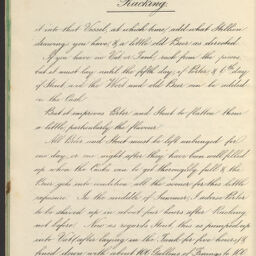 Racking.
it into that Vessel, at which time, add what Stillion
drawing you have, & a little old Beer as directed.
If you have no Vat or Tank, rack from the pieces,
but it must lay until the fifth day, if Porter, & 6th day
if Stout and the Wort and old Beer can be added
in the Cask.
But it improves Porter and Stout to flatten them
a little, particularly the flavour.
All Porter and Stout must be left unbunged for
one day, or one night after they have been well filled
up when the Casks can be got thoroughly full & the
Beer gets into condition all the sooner for this little
exposure. In the middle of Summer, Porter
to be shived up in about four hours after Racking
not before. Now as regards Stout, this is pumped up
into Vat (after laying in the Tank for five hours) &
fined down with about 100 Gallons of Finings to 100